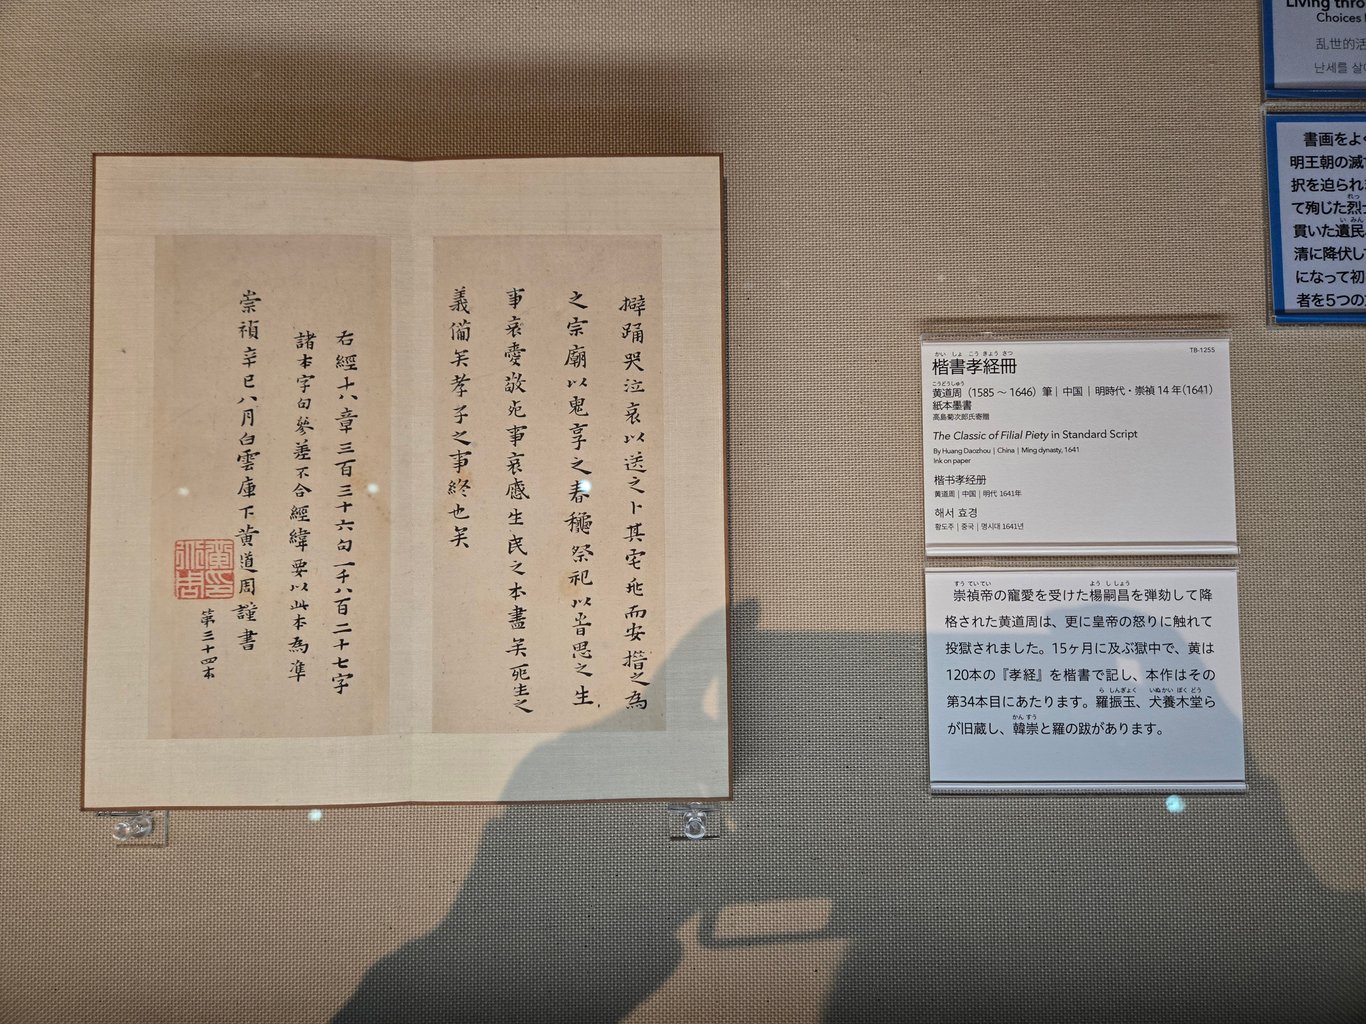 擗踊哭泣哀以送之卜其宅兆而安措之為
之宗廟以鬼享之春穐祭祀以峕思之生
事哀愛敬死事哀慼生民之本盡矣死生之
義備矣孝子之事終也矣
右經十八章三百三十六句一千八百二十七字
諸本字句參差不合經緯要以此本為準
崇禎辛巳八月白雲庫下黃道周謹書
第三十四本
黃道周印
TB-1255
かい しょ こう きょう さつ
楷書孝経冊
こうどうしゅう
黄道周（1585 ～ 1646）筆｜中国｜明時代・崇禎 14 年（1641）
紙本墨書
高島菊次郎氏寄贈
The Classic of Filial Piety in Standard Script
By Huang Daozhou | China | Ming dynasty, 1641
Ink on paper
楷书孝经册
黄道周｜中国｜明代 1641年
해서 효경
황도주｜중국｜명시대 1641년
すう てい てい よう し しょう
崇禎帝の寵愛を受けた楊嗣昌を弾劾して降
格された黄道周は、更に皇帝の怒りに触れて
投獄されました。15ヶ月に及ぶ獄中で、黄は
120本の『孝経』を楷書で記し、本作はその
ら しんぎょく いぬかい ぼく どう
第34本目にあたります。羅振玉、犬養木堂ら
かん すう
が旧蔵し、韓崇と羅の跋があります。
Living thro
Choices
乱世的活
난세를 살
書画をよ
明王朝の滅
択を迫られ
れっ
て殉じた烈
い みん
貫いた遺民
清に降伏し
になって初
者を5つの